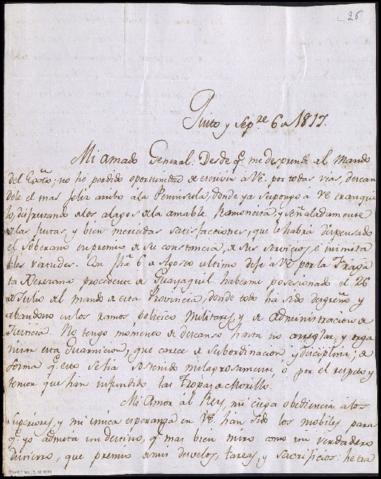 26
Quito y Sepre 6 de 1817.
Mi amado General. Desde qe me desprendí del Mando
del Exto no he perdido oportunidad de escrivir a VE. por todas vias, desean
dole el mas feliz arribo á la Peninsula, donde ya supongo a VE tranqui
lo, disfrutando los alagos de la amable Ramoncita, y señaladamente
de las justas, y bien merecidas satisfacciones, que le habrá dispensado
el Soberano en premio de su constancia, de sus servicios, é inimita
bles virtudes. En 6 de Agosto ultimo dije á VE por la Fraga
ta procedente de Guayaquil haberme posesionado el 26
de Julio del mando de esta Provincia, donde todo ha sido desgreño y
abandono en los ramos politico Militares, y de administracion de
Justicia. No tengo momento de descanso hasta no arreglar, y orga
nizar esta Guarnicion, que carece de Subordinacion y disciplina; de
forma qe esto se ha sostenido milagrosamente, ó por el respeto y
temor que han infundido las Tropas de Morillo.
Mi Amor al Rey, mi ciega obediencia á los
Superiores, y mi unica esperanza en VE. han sido los mobiles, para
qe yo admita un destino, qe mas bien miro como un verdadero
destierro, que premio a mis desvelos, tareas, y sacrificios hecha